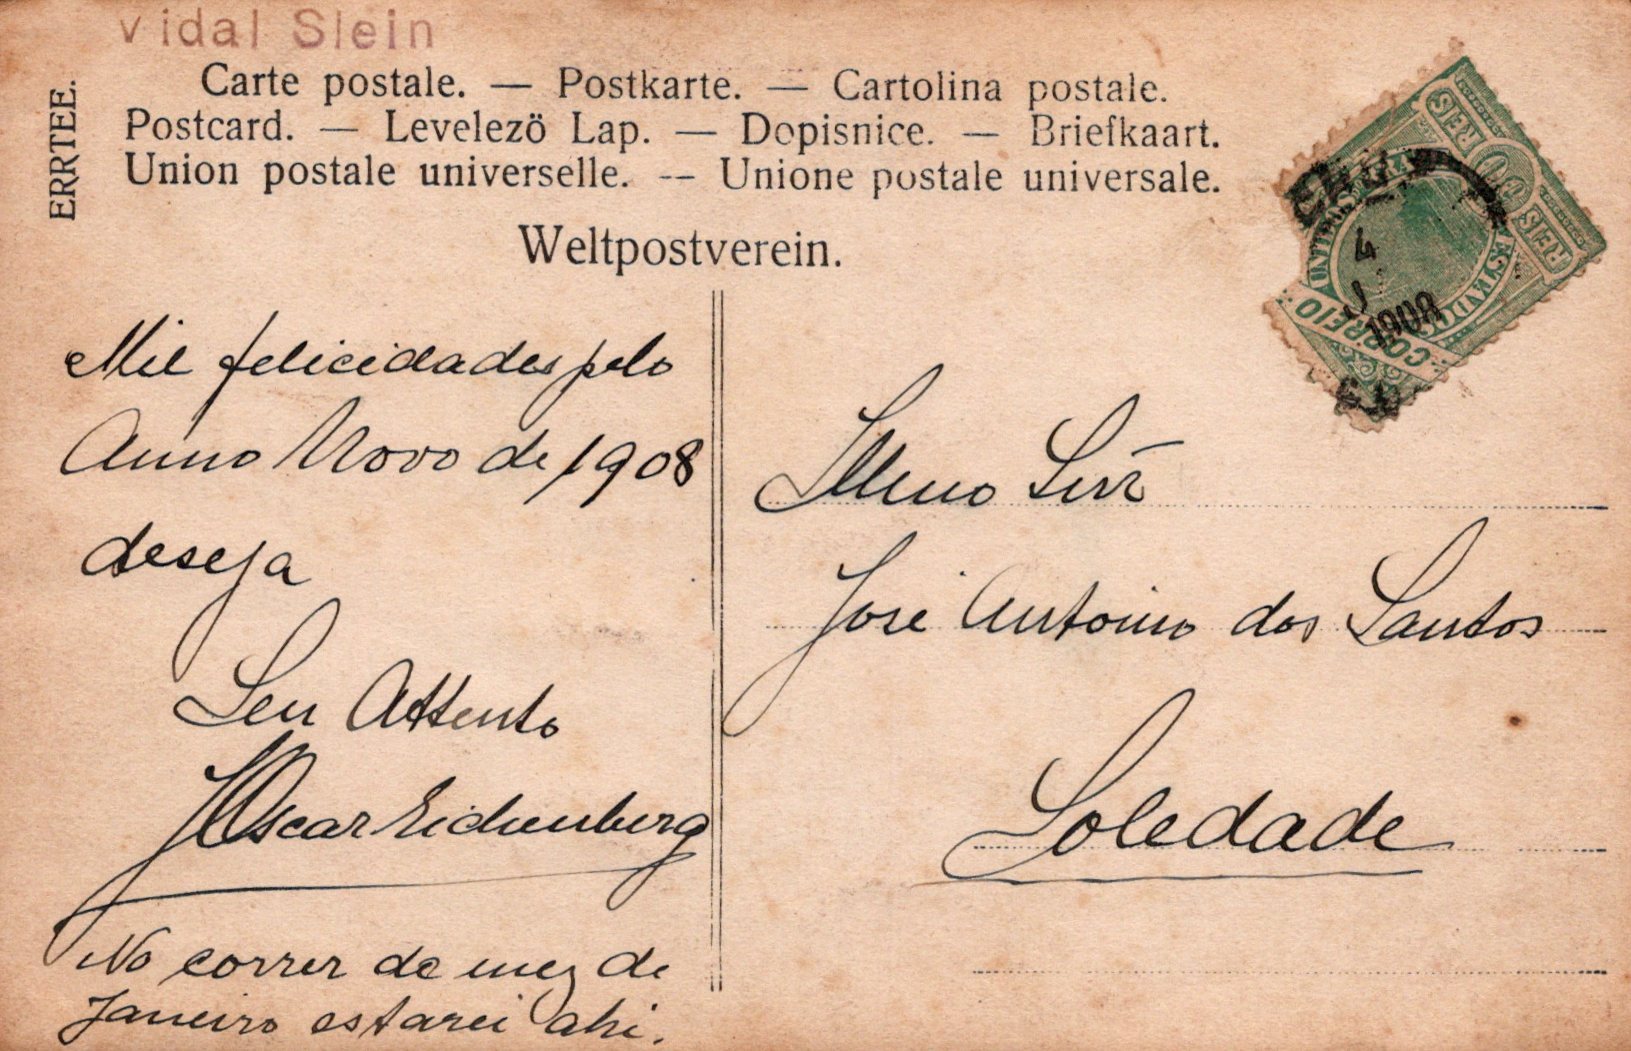 Vidal Slein
ERRTEE.
Carte postale. — Postkarte. — Cartolina postale.
Postcard. — Levelezö Lap. — Dopisnice. — Briefkaart.
Union postale universelle. -- Unione postale universale.
Weltpostverein.
REIS
REIS
CORREIO
4
1908
Mil felicidades pelo
Anno Novo de 1908
deseja
Seu Attento
Oscar Eichenberg
No correr de mez de
Janeiro estarei ahi.
Illmo Snr
José Antonio dos Santos
Soledade